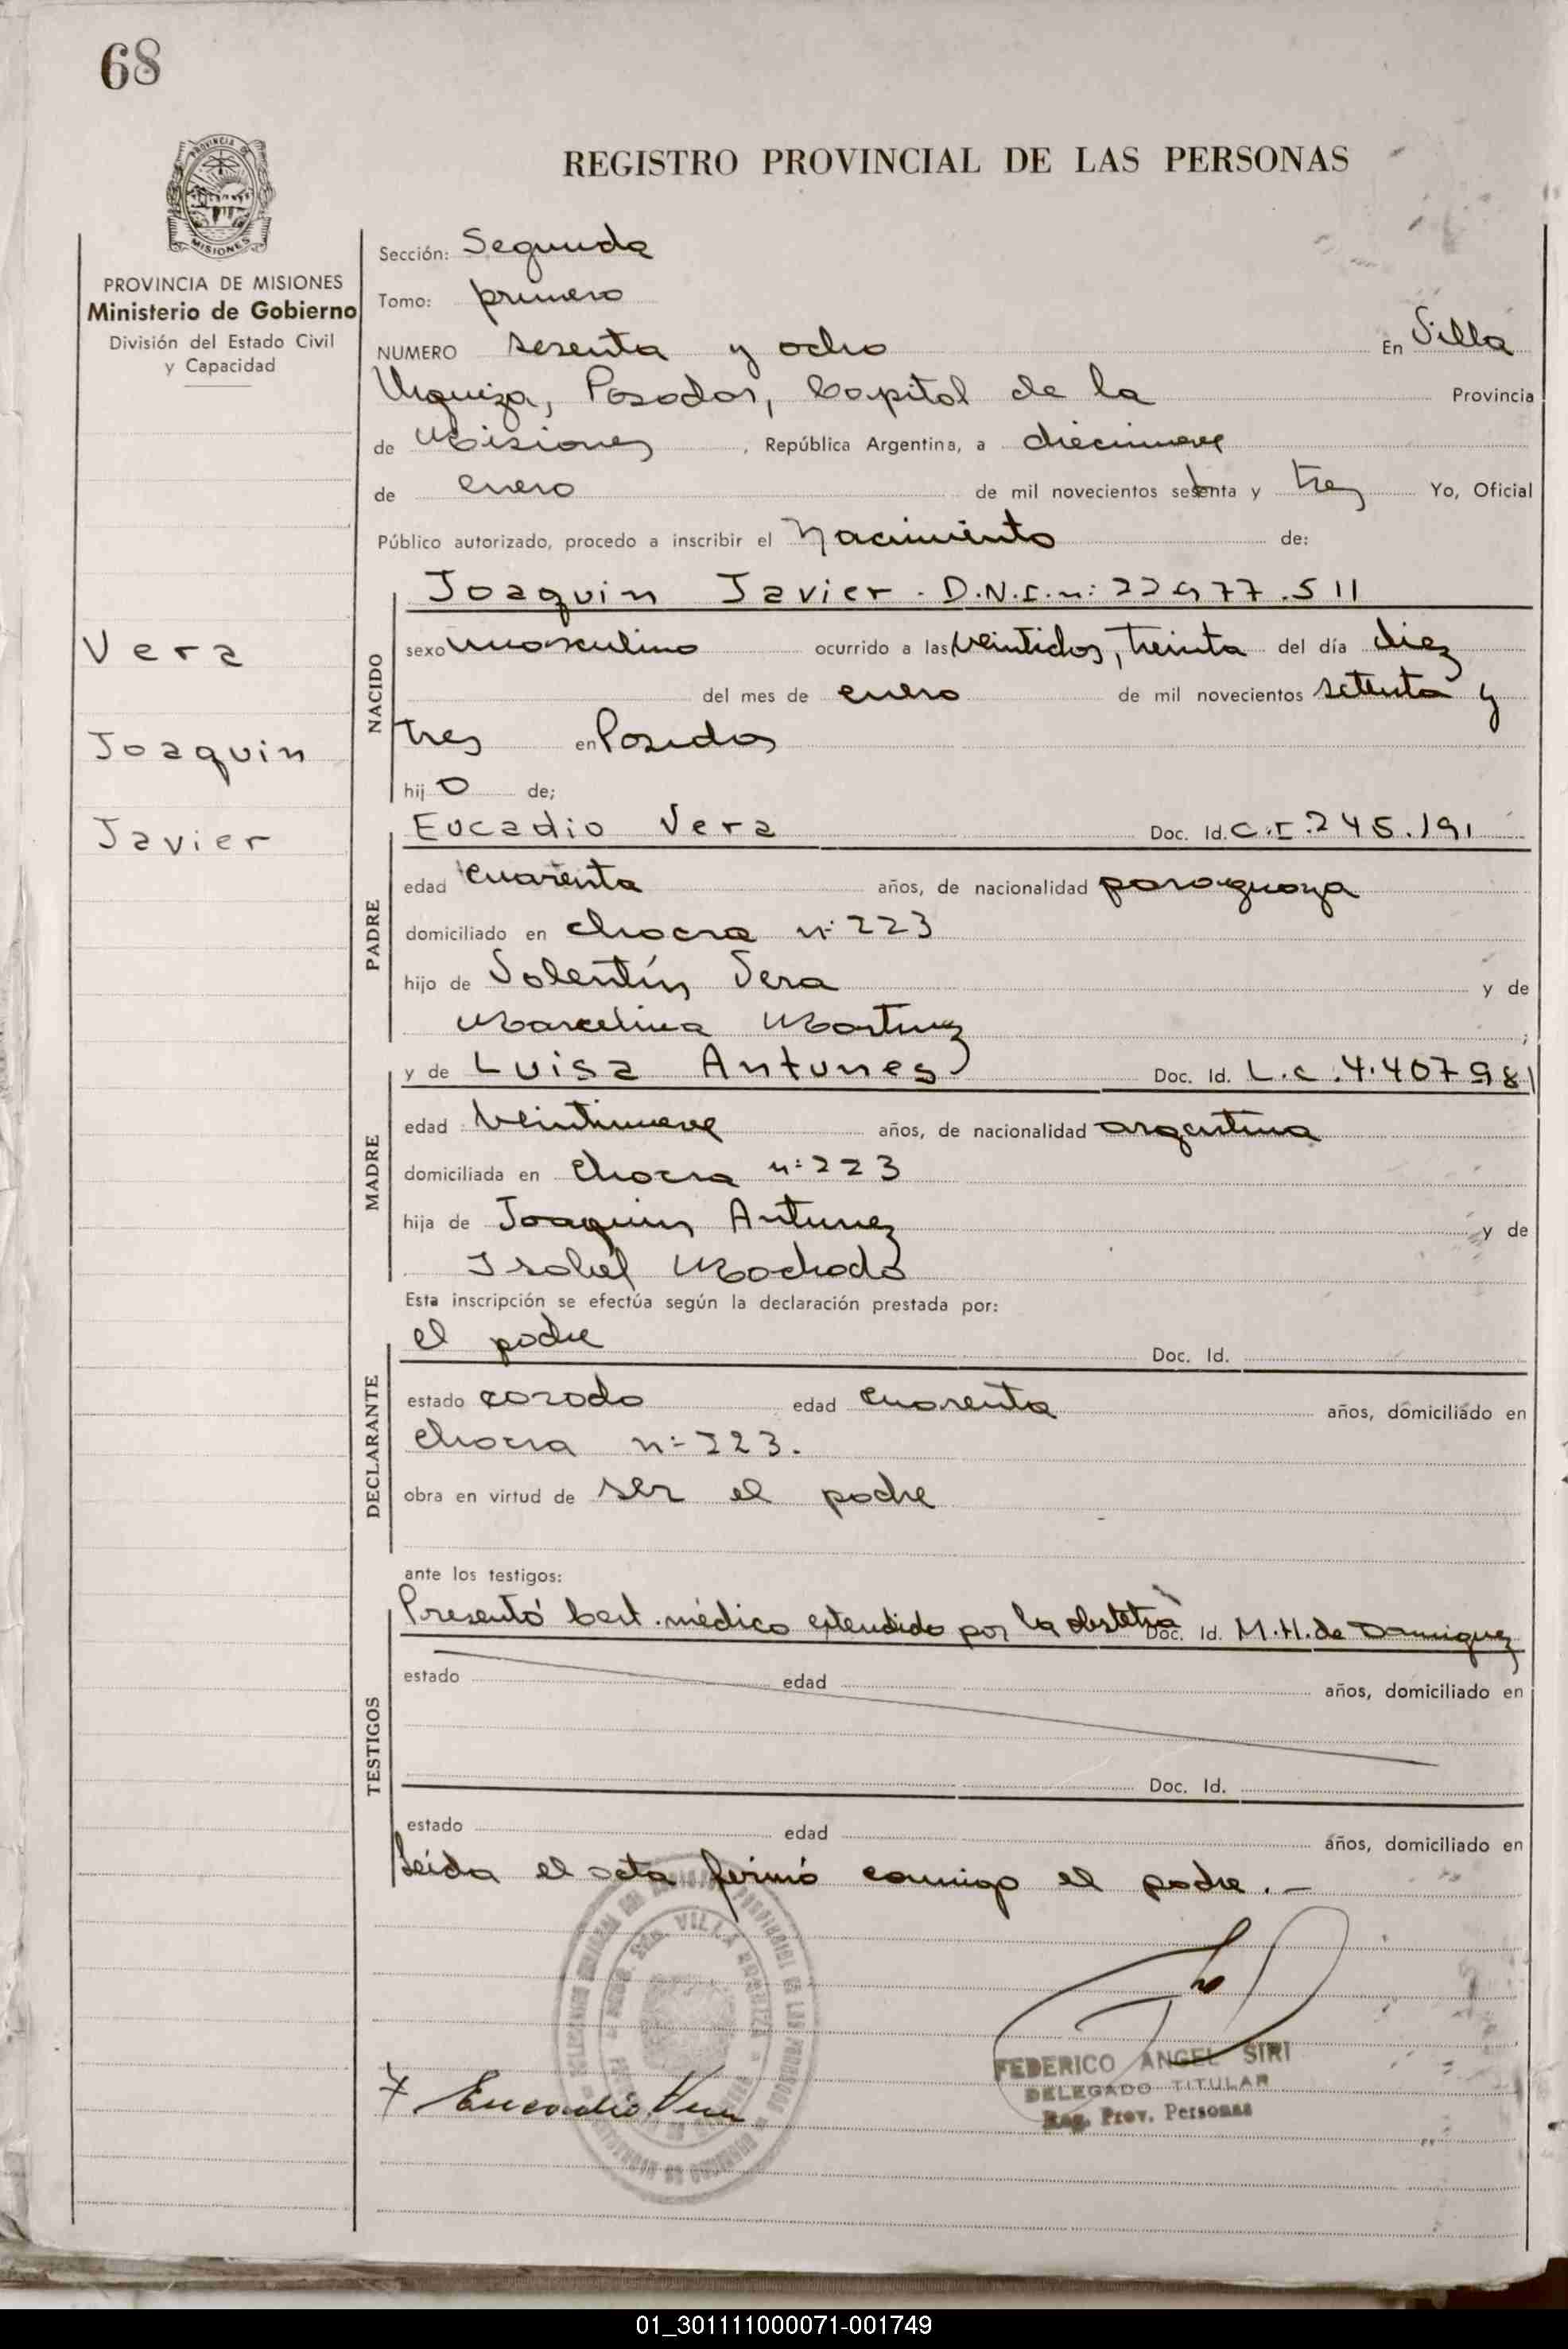 68
REGISTRO PROVINCIAL DE LAS PERSONAS
PROVINCIA DE MISIONES
Ministerio de Gobierno
División del Estado Civil
y Capacidad
Vera
Joaquin
Javier
Sección: Segunda
Tomo: primero
NUMERO sesenta y ocho En Villa
Urquiza, Posadas, Capital de la Provincia
de Misiones, República Argentina, a diecinueve
de enero de mil novecientos setenta y tres Yo, Oficial
Público autorizado, procedo a inscribir el Nacimiento de:
NACIDO
Joaquin Javier - D.N.I. n: 22977.511
sexo masculino ocurrido a las veintidos, treinta del día diez
del mes de enero de mil novecientos setenta y
tres en Posadas
hijo de;
PADRE
Eucadio Vera Doc. Id. C.I. 245.191
edad cuarenta años, de nacionalidad paraguaya
domiciliado en chacra n: 223
hijo de Valentín Vera y de
Marcelina Martinez;
MADRE
y de Luisa Antunes Doc. Id. L.c. 4.407981
edad veintinueve años, de nacionalidad argentina
domiciliada en chacra n: 223
hija de Joaquin Antunez y de
Isabel Machado
Esta inscripción se efectúa según la declaración prestada por:
DECLARANTE
el padre Doc. Id.
estado casado edad cuarenta años, domiciliado en
chacra n: 223.
obra en virtud de ser el padre
ante los testigos:
TESTIGOS
Presentó Cert. médico extendido por la obstetra Doc. Id. M.H. de Dominguez
estado edad años, domiciliado en
Doc. Id.
estado edad años, domiciliado en
Leida el acta firmó conmigo el padre.-
Eucadio Vera
FEDERICO ANGEL SIRI
DELEGADO TITULAR
Reg. Prov. Personas
01_301111000071-001749